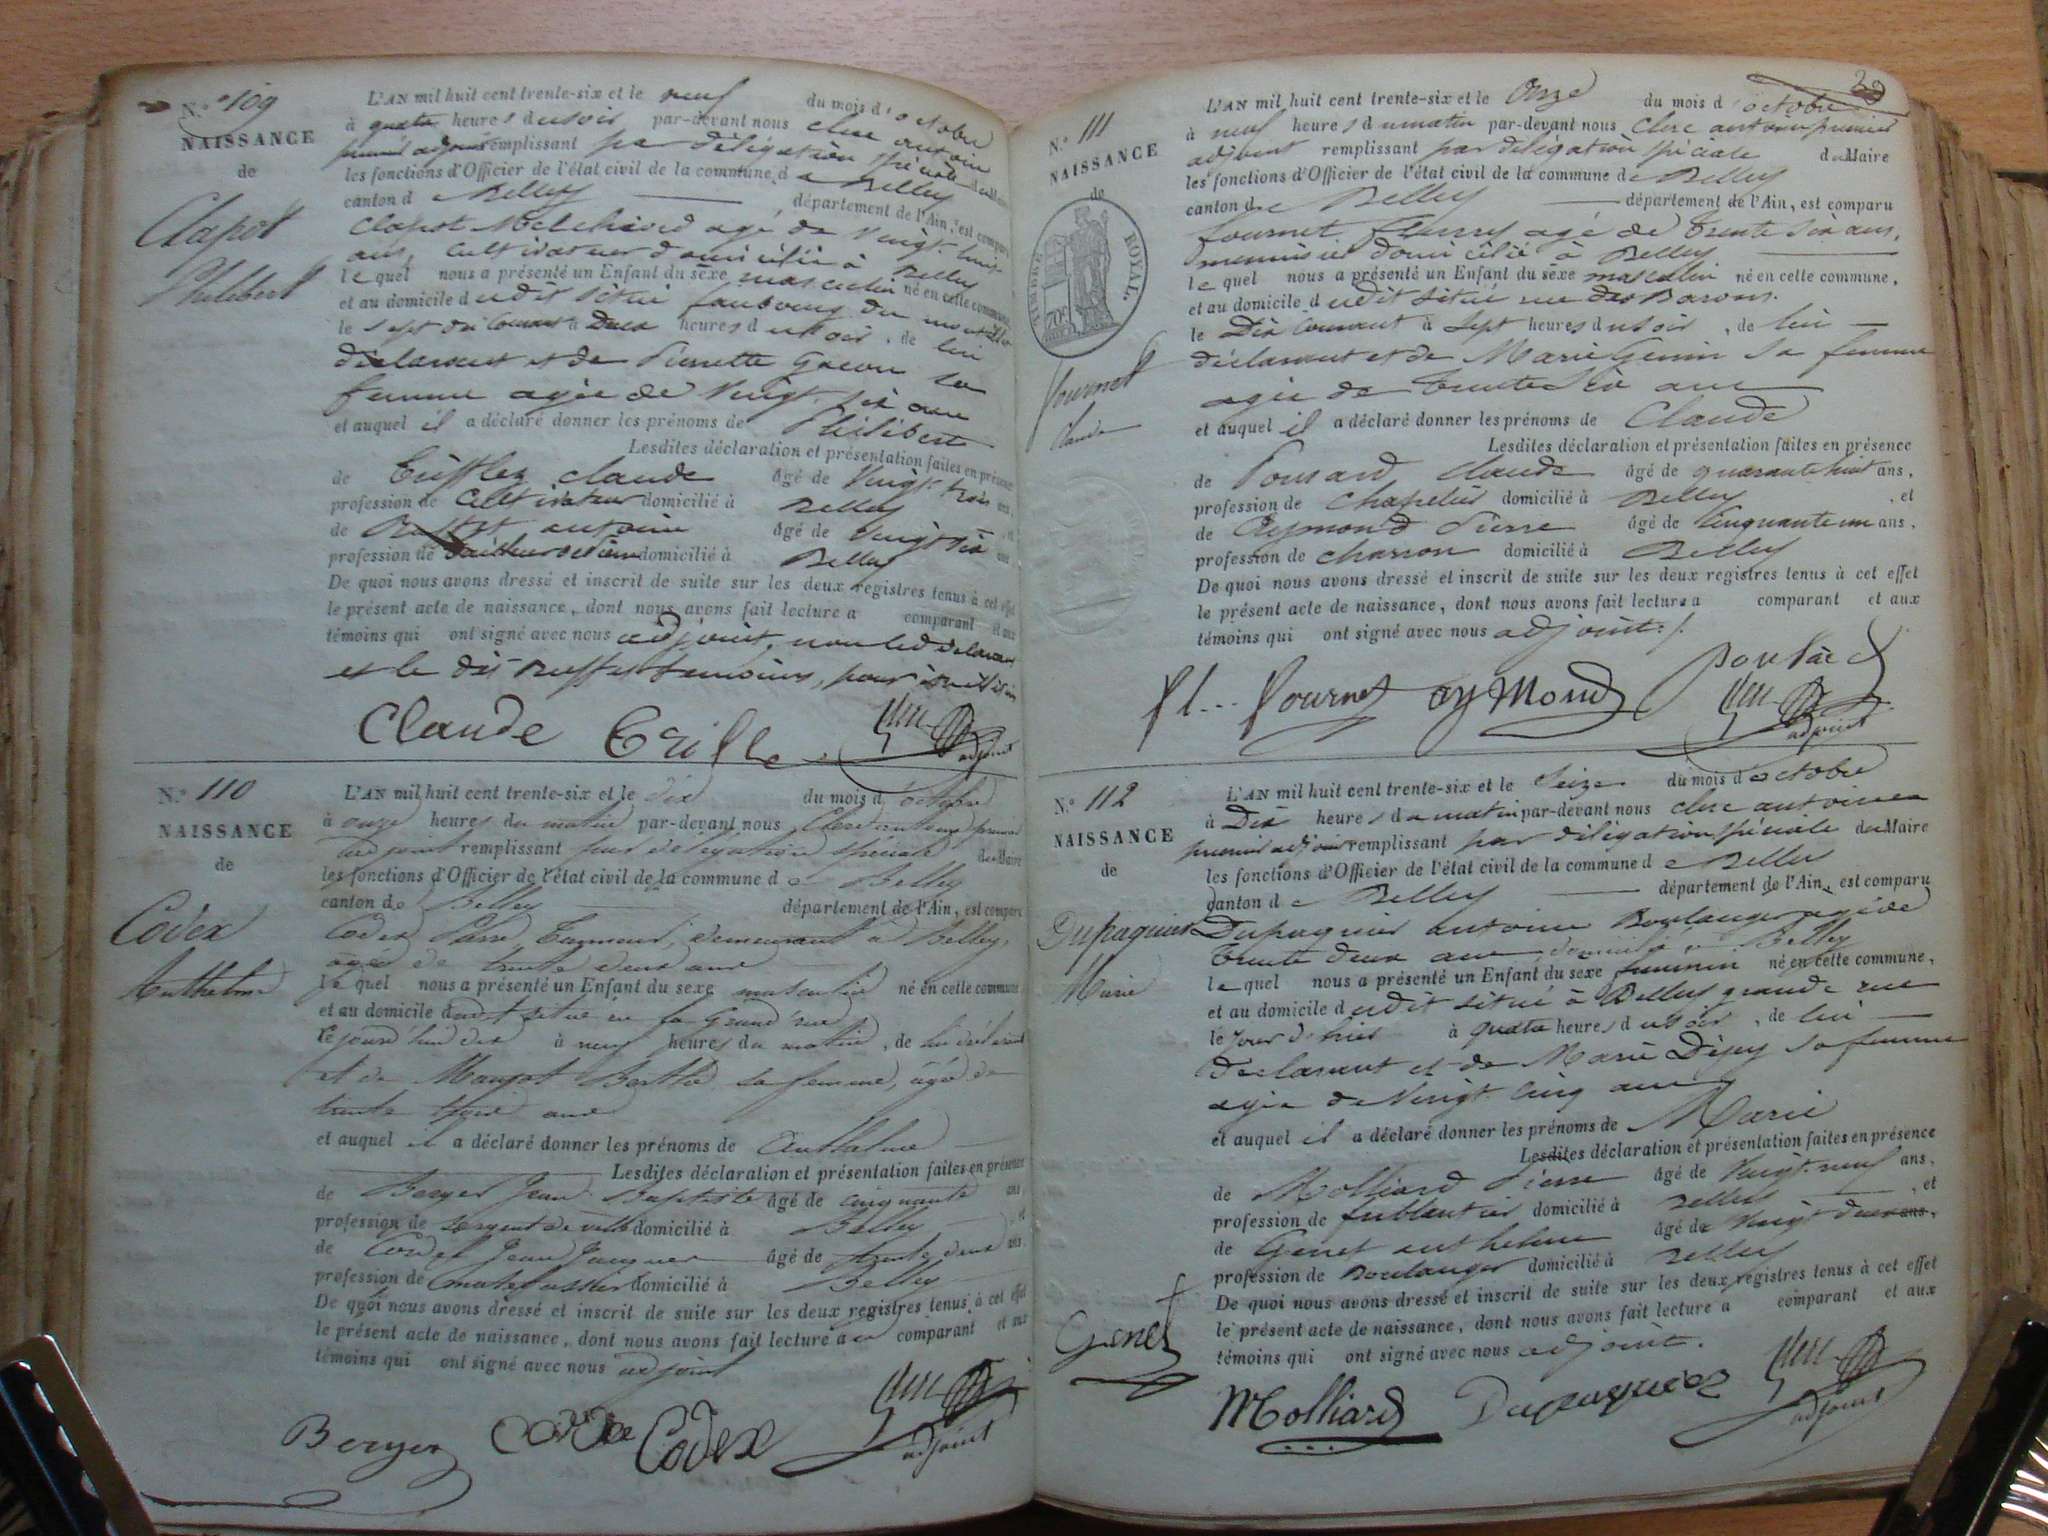 N.° 109
NAISSANCE
de
Clapot
Philibert
L'AN mil huit cent trente-six et le neuf du mois d'octobre
à quatre heures du soir par-devant nous clerc antoine
premier adjoint remplissant par délégation spéciale du Maire
les fonctions d'Officier de l'état civil de la commune de Belley
canton de Belley département de l'Ain, est comparu
Clapot Melchiord agé de Vingt huit
ans, cultivateur domicilié à Belley
lequel nous a présenté un Enfant du sexe masculin né en cette commune
et au domicile dudit situé faubourg du
le sept du Courant à Deux heures du soir, de lui
déclarant et de Pierrette sa
femme agée de Vingt six ans
et auquel il a déclaré donner les prénoms de Philibert
Lesdites déclaration et présentation faites en présence
de claude âgé de Vingt trois ans,
profession de Cultivateur domicilié à Belley, et
de antoine âgé de Vingt six ans
profession de domicilié à Belley
De quoi nous avons dressé et inscrit de suite sur les deux registres tenus à cet effet
le présent acte de naissance, dont nous avons fait lecture a comparant et aux
témoins qui ont signé avec nous adjoint, non led déclarant
et le dit témoins, pour
Claude
adjoint
N.° 110
NAISSANCE
de
Codex
Anthelme
L'AN mil huit cent trente-six et le dix du mois d'octobre
à onze heures du matin par-devant nous Clerc antoine premier
adjoint remplissant par délégation spéciale du Maire
les fonctions d'Officier de l'état civil de la commune de Belley
canton de Belley département de l'Ain, est comparu
Codex Pierre, Tanneur, demeurant à Belley,
agé de trente deux ans
lequel nous a présenté un Enfant du sexe masculin né en cette commune
et au domicile dudit situé en la Grand'rue
le jourd'hui dix à neuf heures du matin, de lui déclarant
et de Berthe sa femme, âgée de
trente trois ans
et auquel il a déclaré donner les prénoms de Anthelme
Lesdites déclaration et présentation faites en présence
de Berger Jean Baptiste âgé de cinquante ans,
profession de sergent de ville domicilié à Belley, et
de Jean Jacques âgé de trente deux ans
profession de domicilié à Belley
De quoi nous avons dressé et inscrit de suite sur les deux registres tenus à cet effet
le présent acte de naissance, dont nous avons fait lecture au comparant et aux
témoins qui ont signé avec nous adjoint
Berger Codex
adjoint
N.° 111
NAISSANCE
de
TIMBRE ROYAL.
70c
fournet
Claude
L'AN mil huit cent trente-six et le Onze du mois d'octobre
à neuf heures du matin par-devant nous Clerc antoine premier
adjoint remplissant par délégation spéciale du Maire
les fonctions d'Officier de l'état civil de la commune de Belley
canton de Belley département de l'Ain, est comparu
fournet fleury agé de trente six ans,
menuisier domicilié à Belley
lequel nous a présenté un Enfant du sexe masculin né en cette commune,
et au domicile dudit situé rue des Barons.
le Dix Courant à Sept heures du soir, de lui
déclarant et de Marie Genin sa femme
agée de trente six ans
et auquel il a déclaré donner les prénoms de Claude
Lesdites déclaration et présentation faites en présence
de Ponsard claude âgé de quarante huit ans,
profession de Chapelier domicilié à Belley, et
de Reymond Pierre âgé de Cinquante un ans,
profession de charron domicilié à Belley
De quoi nous avons dressé et inscrit de suite sur les deux registres tenus à cet effet
le présent acte de naissance, dont nous avons fait lecture a comparant et aux
témoins qui ont signé avec nous adjoint ./.
fl... fournet aymond
adjoint
N.° 112
NAISSANCE
de
Dupaquier
Marie
L'AN mil huit cent trente-six et le Seize du mois d'octobre
à Dix heures du matin par-devant nous clerc antoine
premier adjoint remplissant par délégation spéciale du Maire
les fonctions d'Officier de l'état civil de la commune de Belley
canton de Belley département de l'Ain, est comparu
Dupaquier antoine Boulanger agé de
trente deux ans domicilié à Belley
lequel nous a présenté un Enfant du sexe féminin né en cette commune,
et au domicile dudit situé à Belley grande rue
le jour d'hier à quatre heures du soir, de lui
déclarant et de Marie sa femme
agée de Vingt cinq ans
et auquel il a déclaré donner les prénoms de Marie
Lesdites déclaration et présentation faites en présence
de Molliard Pierre âgé de Vingt neuf ans,
profession de ferblantier domicilié à Belley, et
de Genet anthelme âgé de Vingt deux ans,
profession de Boulanger domicilié à Belley
De quoi nous avons dressé et inscrit de suite sur les deux registres tenus à cet effet
le présent acte de naissance, dont nous avons fait lecture a comparant et aux
témoins qui ont signé avec nous adjoint.
Genet Molliard Dupaquier
adjoint